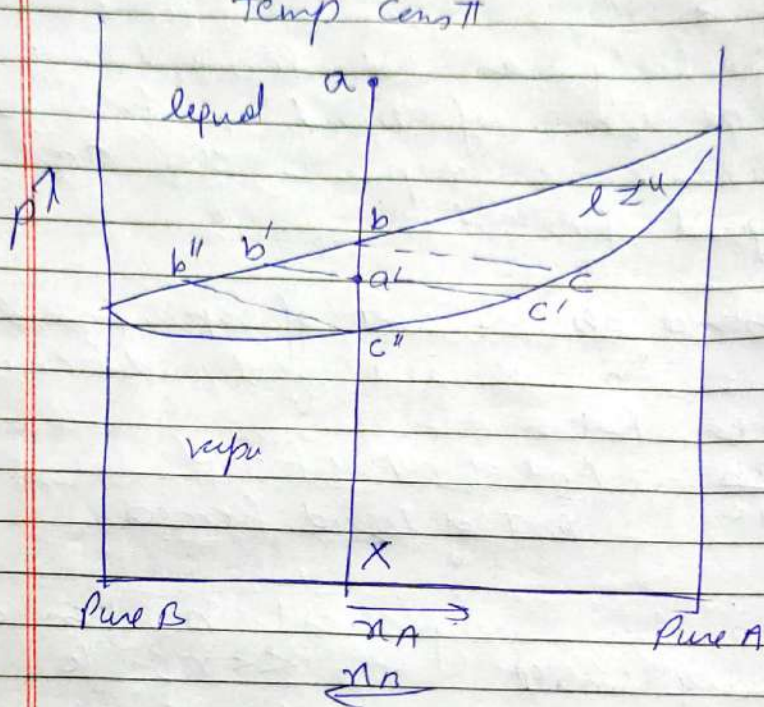 Temp Const
a
liquid
P↑
l ⇌ v
b
b'
b"
a'
c
c'
c"
vapor
X
Pure B
xA
Pure A
xB